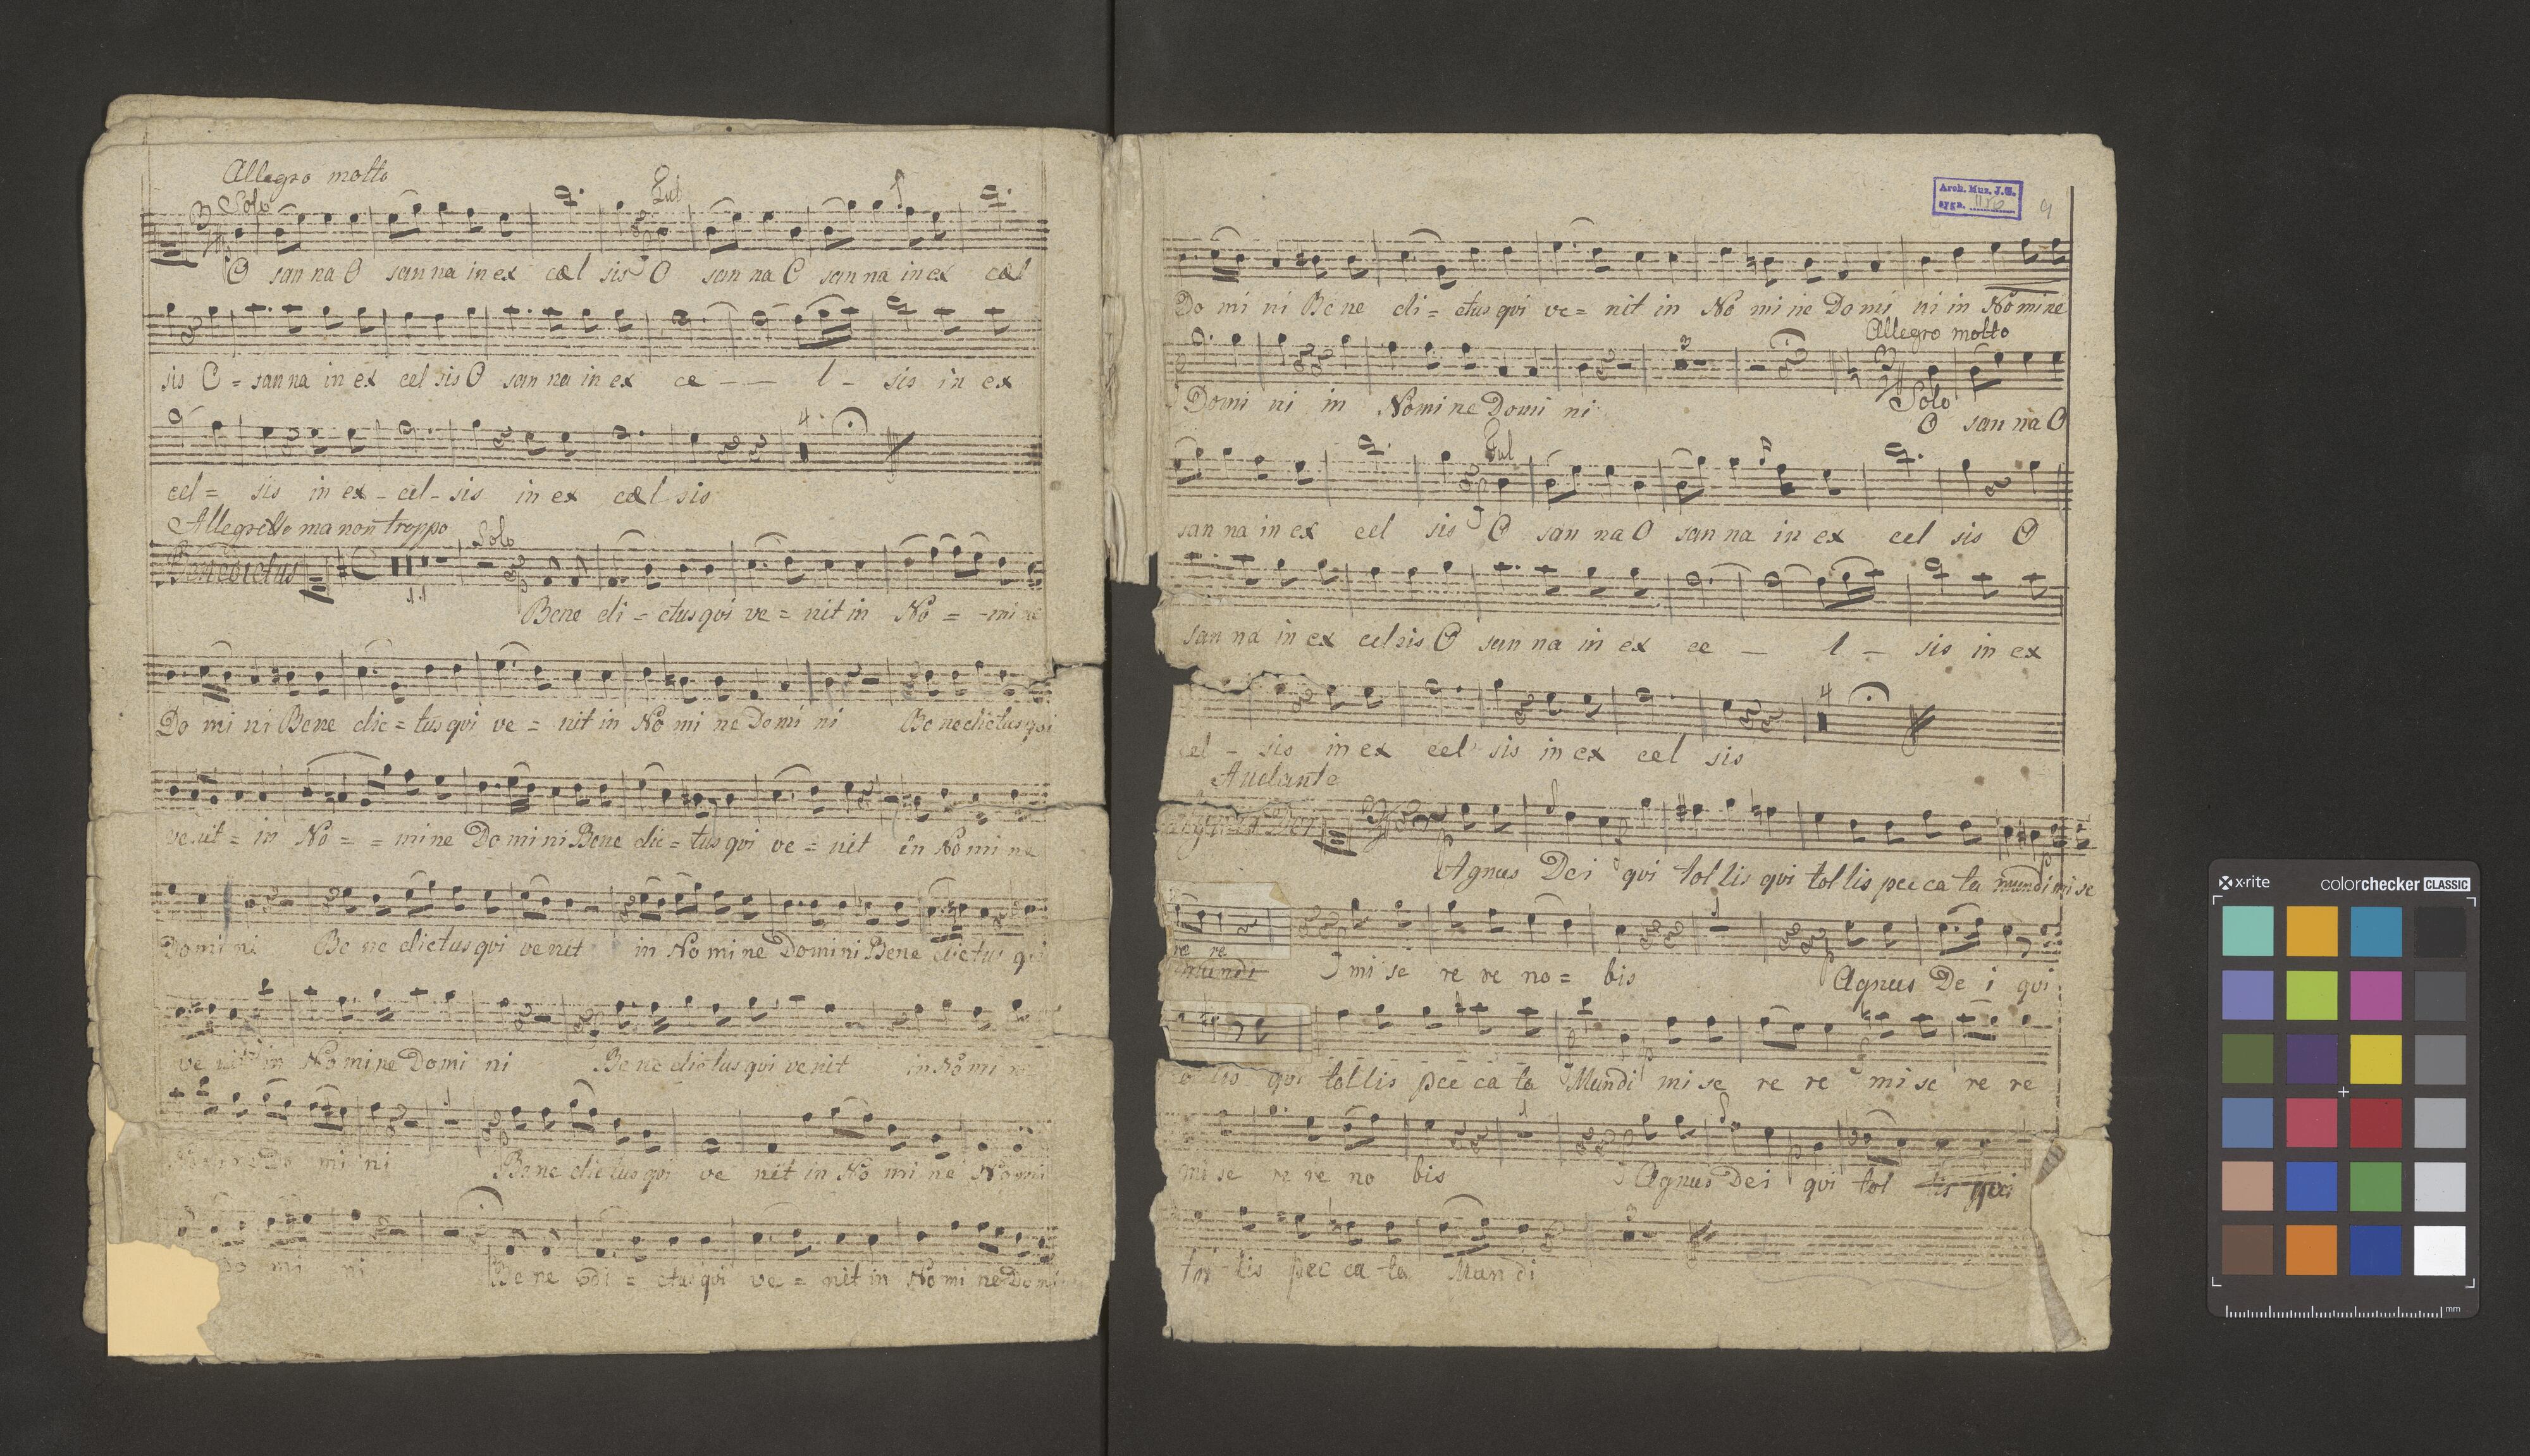 Allegro molto
Solo
Tut
O san na O san na in ex cæl sis O san na O san na in ex cæl
sis O = san na in ex cel sis O san na in ex ce - - l - sis in ex
4
cel = sis in ex - cel - sis in ex cæl sis
Allegretto ma non troppo
Solo
Benedictus
11
Bene di = ctus qui ve = nit in No = - mi ne
Do mi ni Bene dic = tus qui ve = nit in No mi ne Domi ni Be ne dictus qui
ve nit = in No = = mi ne Do mi ni Bene dic = tus qui ve = nit in No mi ne
Domi ni Be ne dictus qui ve nit in No mi ne Domi ni Bene dictus qui
ve nit in No mi ne Domi ni Be ne dictus qui ve nit in No mi
mi ni Bene dictus qui ve nit in No mi ne No mi
Do mi ni Be ne di = ctus qui ve = nit in No mi ne Do mi
Arch. Muz. J.G.
sygn.
9
Do mi ni Be ne di = ctus qui ve = nit in No mi ne Do mi ni in No mi ne
Allegro molto
3
Domi ni in Nomi ne Domi ni
Solo
O san na O
Tut
san na in ex cel sis O san na O san na in ex cel sis O
san na in ex cel sis O san na in ex ce - l - sis in ex
4
cel - sis in ex cel - sis in ex cel sis
Andante
Agnus Dei
Agnus Dei qui tol lis qui tol lis pec ca ta mundi mi se
re re
mundi mi se re re no = bis Agnus De i qui
to lis qui tol lis pec ca ta Mundi mi se re re mi se re re
mi se re re no bis Agnus Dei qui tol lis qui
3
tol lis pec ca ta Mun di
x-rite
colorchecker CLASSIC
mm